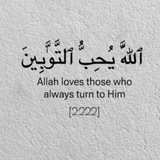 ٱللَّهَ يُحِبُّ ٱلتَّوَّٰبِينَ
Allah loves those who
always turn to Him
[2:222]